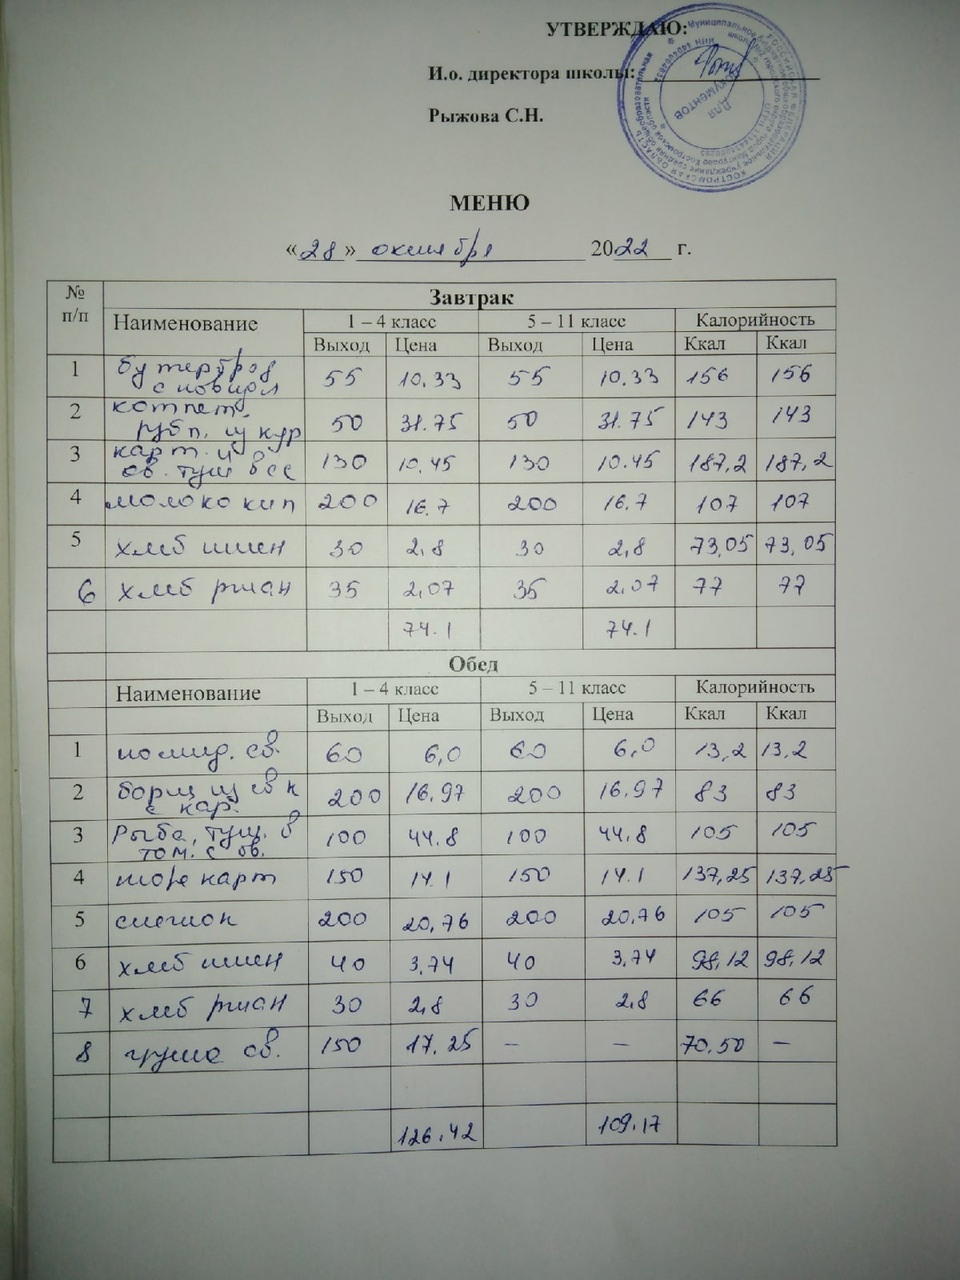 УТВЕРЖДАЮ:
И.о. директора школы:
Рыжова С.Н.
Для документов
МЕНЮ
«28» октября 2022 г.
№ п/п Завтрак
Наименование 1 – 4 класс 5 – 11 класс Калорийность
Выход Цена Выход Цена Ккал Ккал
1 бутерброд с повидл 55 10,33 55 10,33 156 156
2 котлета рубл. из кур 50 31.75 50 31.75 143 143
3 карт. и ов. туш 130 10,45 130 10.45 187,2 187,2
4 молоко кип 200 16.7 200 16.7 107 107
5 хлеб пшен 30 2,8 30 2,8 73,05 73,05
6 хлеб ржан 35 2,07 35 2,07 77 77
74.1 74.1
Обед
Наименование 1 – 4 класс 5 – 11 класс Калорийность
Выход Цена Выход Цена Ккал Ккал
1 помид. св. 60 6,0 60 6,0 13,2 13,2
2 борщ из св к с кар. 200 16.97 200 16.97 83 83
3 Рыба, туш. в том. с ов. 100 44.8 100 44.8 105 105
4 пюре карт 150 14.1 150 14.1 137,25 137,25
5 200 20,76 200 20,76 105 105
6 хлеб пшен 40 3,74 40 3,74 98,12 98,12
7 хлеб ржан 30 2,8 30 2,8 66 66
8 груша св. 150 17.25 – – 70,50 –
126.42 109.17